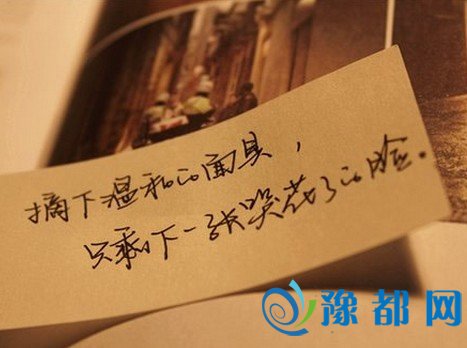 摘下温和的面具，
只剩下一张哭花了的脸。
豫都网